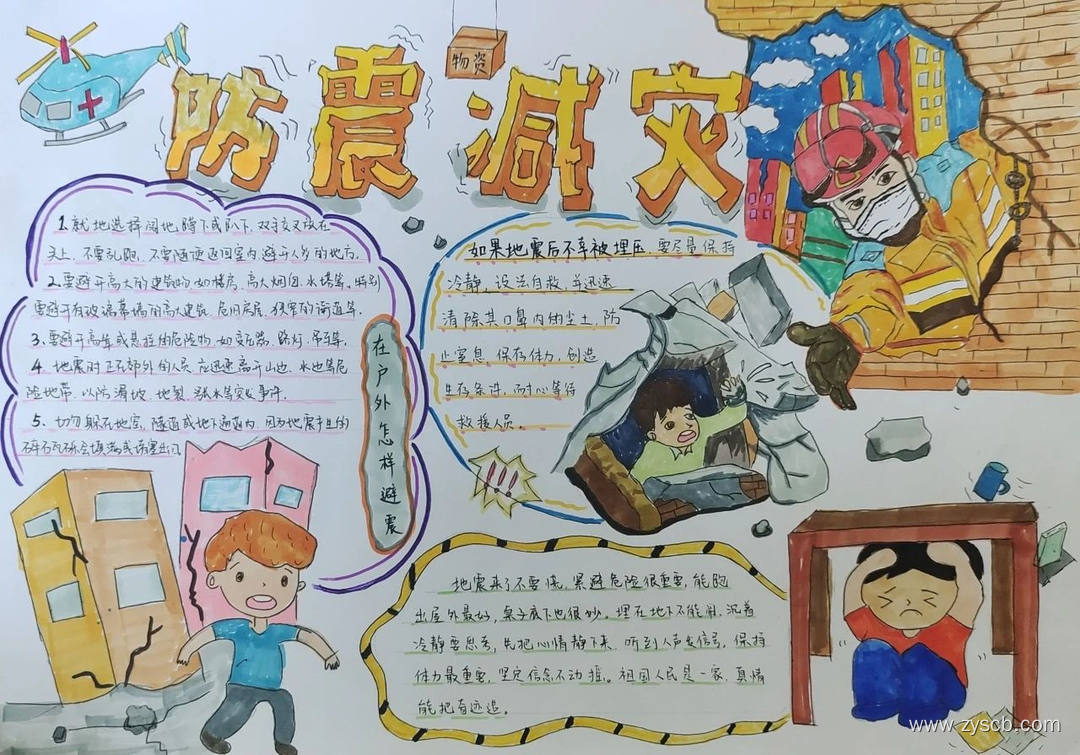 防震减灾
物资
1.就地选择阔地蹲下或趴下,双手交叉放在
头上,不要乱跑,不要随便返回室内,避开人多的地方.
2.要避开高大的建筑物,如楼房,高大烟囱,水塔等,特别
要避开有玻璃幕墙的高大建筑,危旧房屋,狭窄的街道等.
3.要避开高耸或悬挂的危险物,如变压器,路灯,吊车等.
4.地震时正在郊外的人员,应迅速离开山边,水边等危
险地带,以防滑坡,地裂,涨水等突发事件.
5.切勿躲在地窖,隧道或地下通道内,因为地震产生的
碎石瓦砾会填满或堵塞出口
在户外怎样避震
如果地震后不幸被埋压,要尽量保持
冷静,设法自救,并迅速
清除其口鼻内的尘土,防
止窒息,保存体力,创造
生存条件,耐心等待
救援人员。
!!!
地震来了不要慌,紧避危险很重要,能跑
出屋外最好,桌子底下也很妙。埋在地下不能闹,沉着
冷静要思考,先把心情静下来,听到人声发信号,保持
体力最重要,坚定信念不动摇。祖国人民是一家,真情
能把奇迹造。
www.zyscb.com